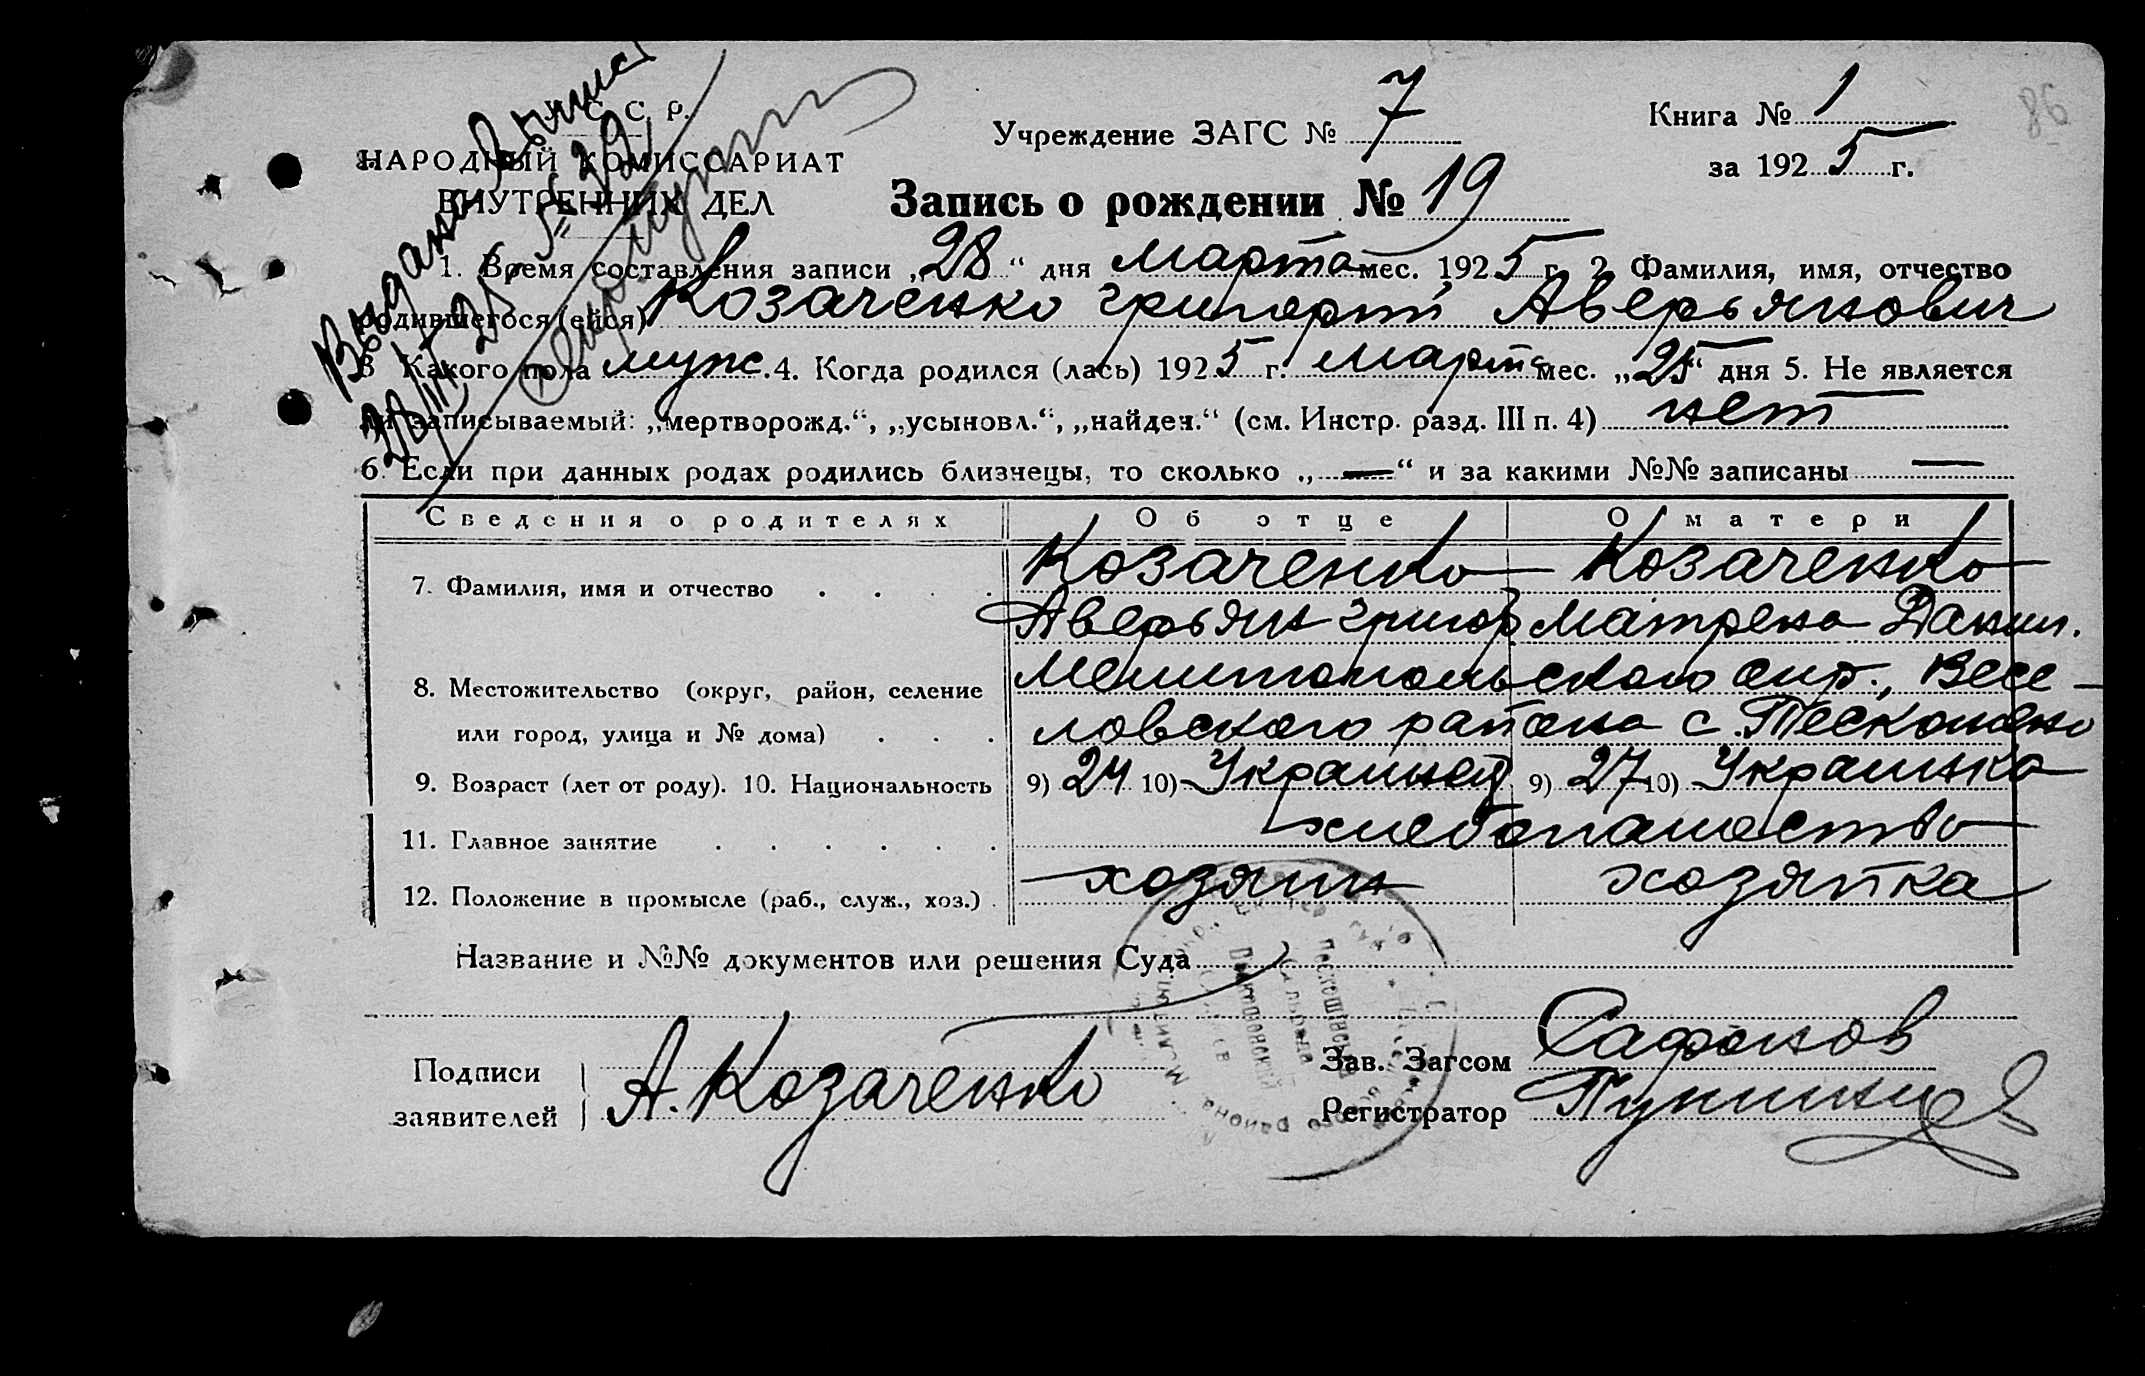 Выдана Выпис
28/III-25. № 39
С. С. Р.
НАРОДНЫЙ КОМИССАРИАТ
ВНУТРЕННИХ ДЕЛ
Учреждение ЗАГС № 7
Книга № 1
86
за 1925 г.
Запись о рождении № 19
1. Время составления записи „28“ дня марта мес. 1925 г. 2. Фамилия, имя, отчество
родившегося (ейся) Козаченко Григорий Аверьянович
3. Какого пола муж. 4. Когда родился (лась) 1925 г. марта мес. „25“ дня 5. Не является
ли записываемый: „мертворожд.“, „усыновл.“, „найден.“ (см. Инстр. разд. III п. 4) нет
6. Если при данных родах родились близнецы, то сколько „—“ и за какими №№ записаны —
Сведения о родителях Об отце О матери
7. Фамилия, имя и отчество Козаченко Козаченко
Аверьян Григор Матрена Данил.
8. Местожительство (округ, район, селение Мелитопольского окр., Весе-
или город, улица и № дома) ловского района с.
9. Возраст (лет от роду). 10. Национальность 9) 24 10) Украинец 9) 27 10) Украинка
11. Главное занятие хлебопашество
12. Положение в промысле (раб., служ., хоз.) хозяин хозяйка
Название и №№ документов или решения Суда
Подписи
заявителей
А. Козаченко
Зав. Загсом Сафонов
Регистратор